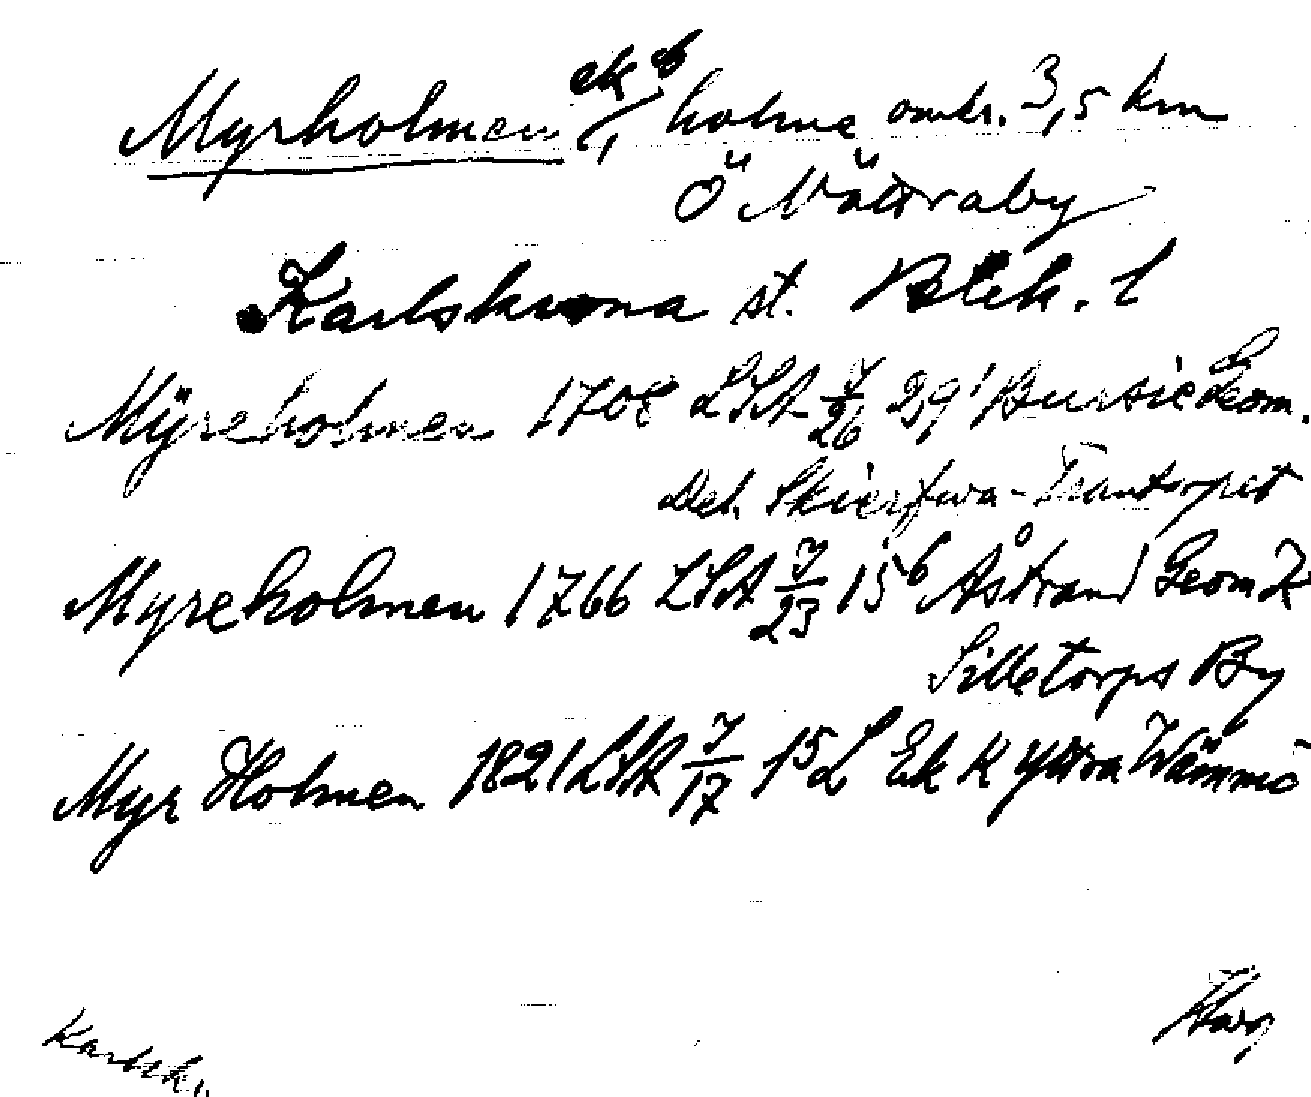 Myrholmen ek b /, holme omkr. 3,5 km
Ö Nättraby
Karlskrona st. Blek. l
Mÿreholmen 1708 LSA 7/26 29' Bursie Geom.
Del. Skierfwa-
Myreholmen 1766 LSA 7/23 15 b Åstrand Geom K
Silletorps By
Myr Holmen 1821 LSA 7/17 15 L Ek K Yttra Wämmö
Karlsk.